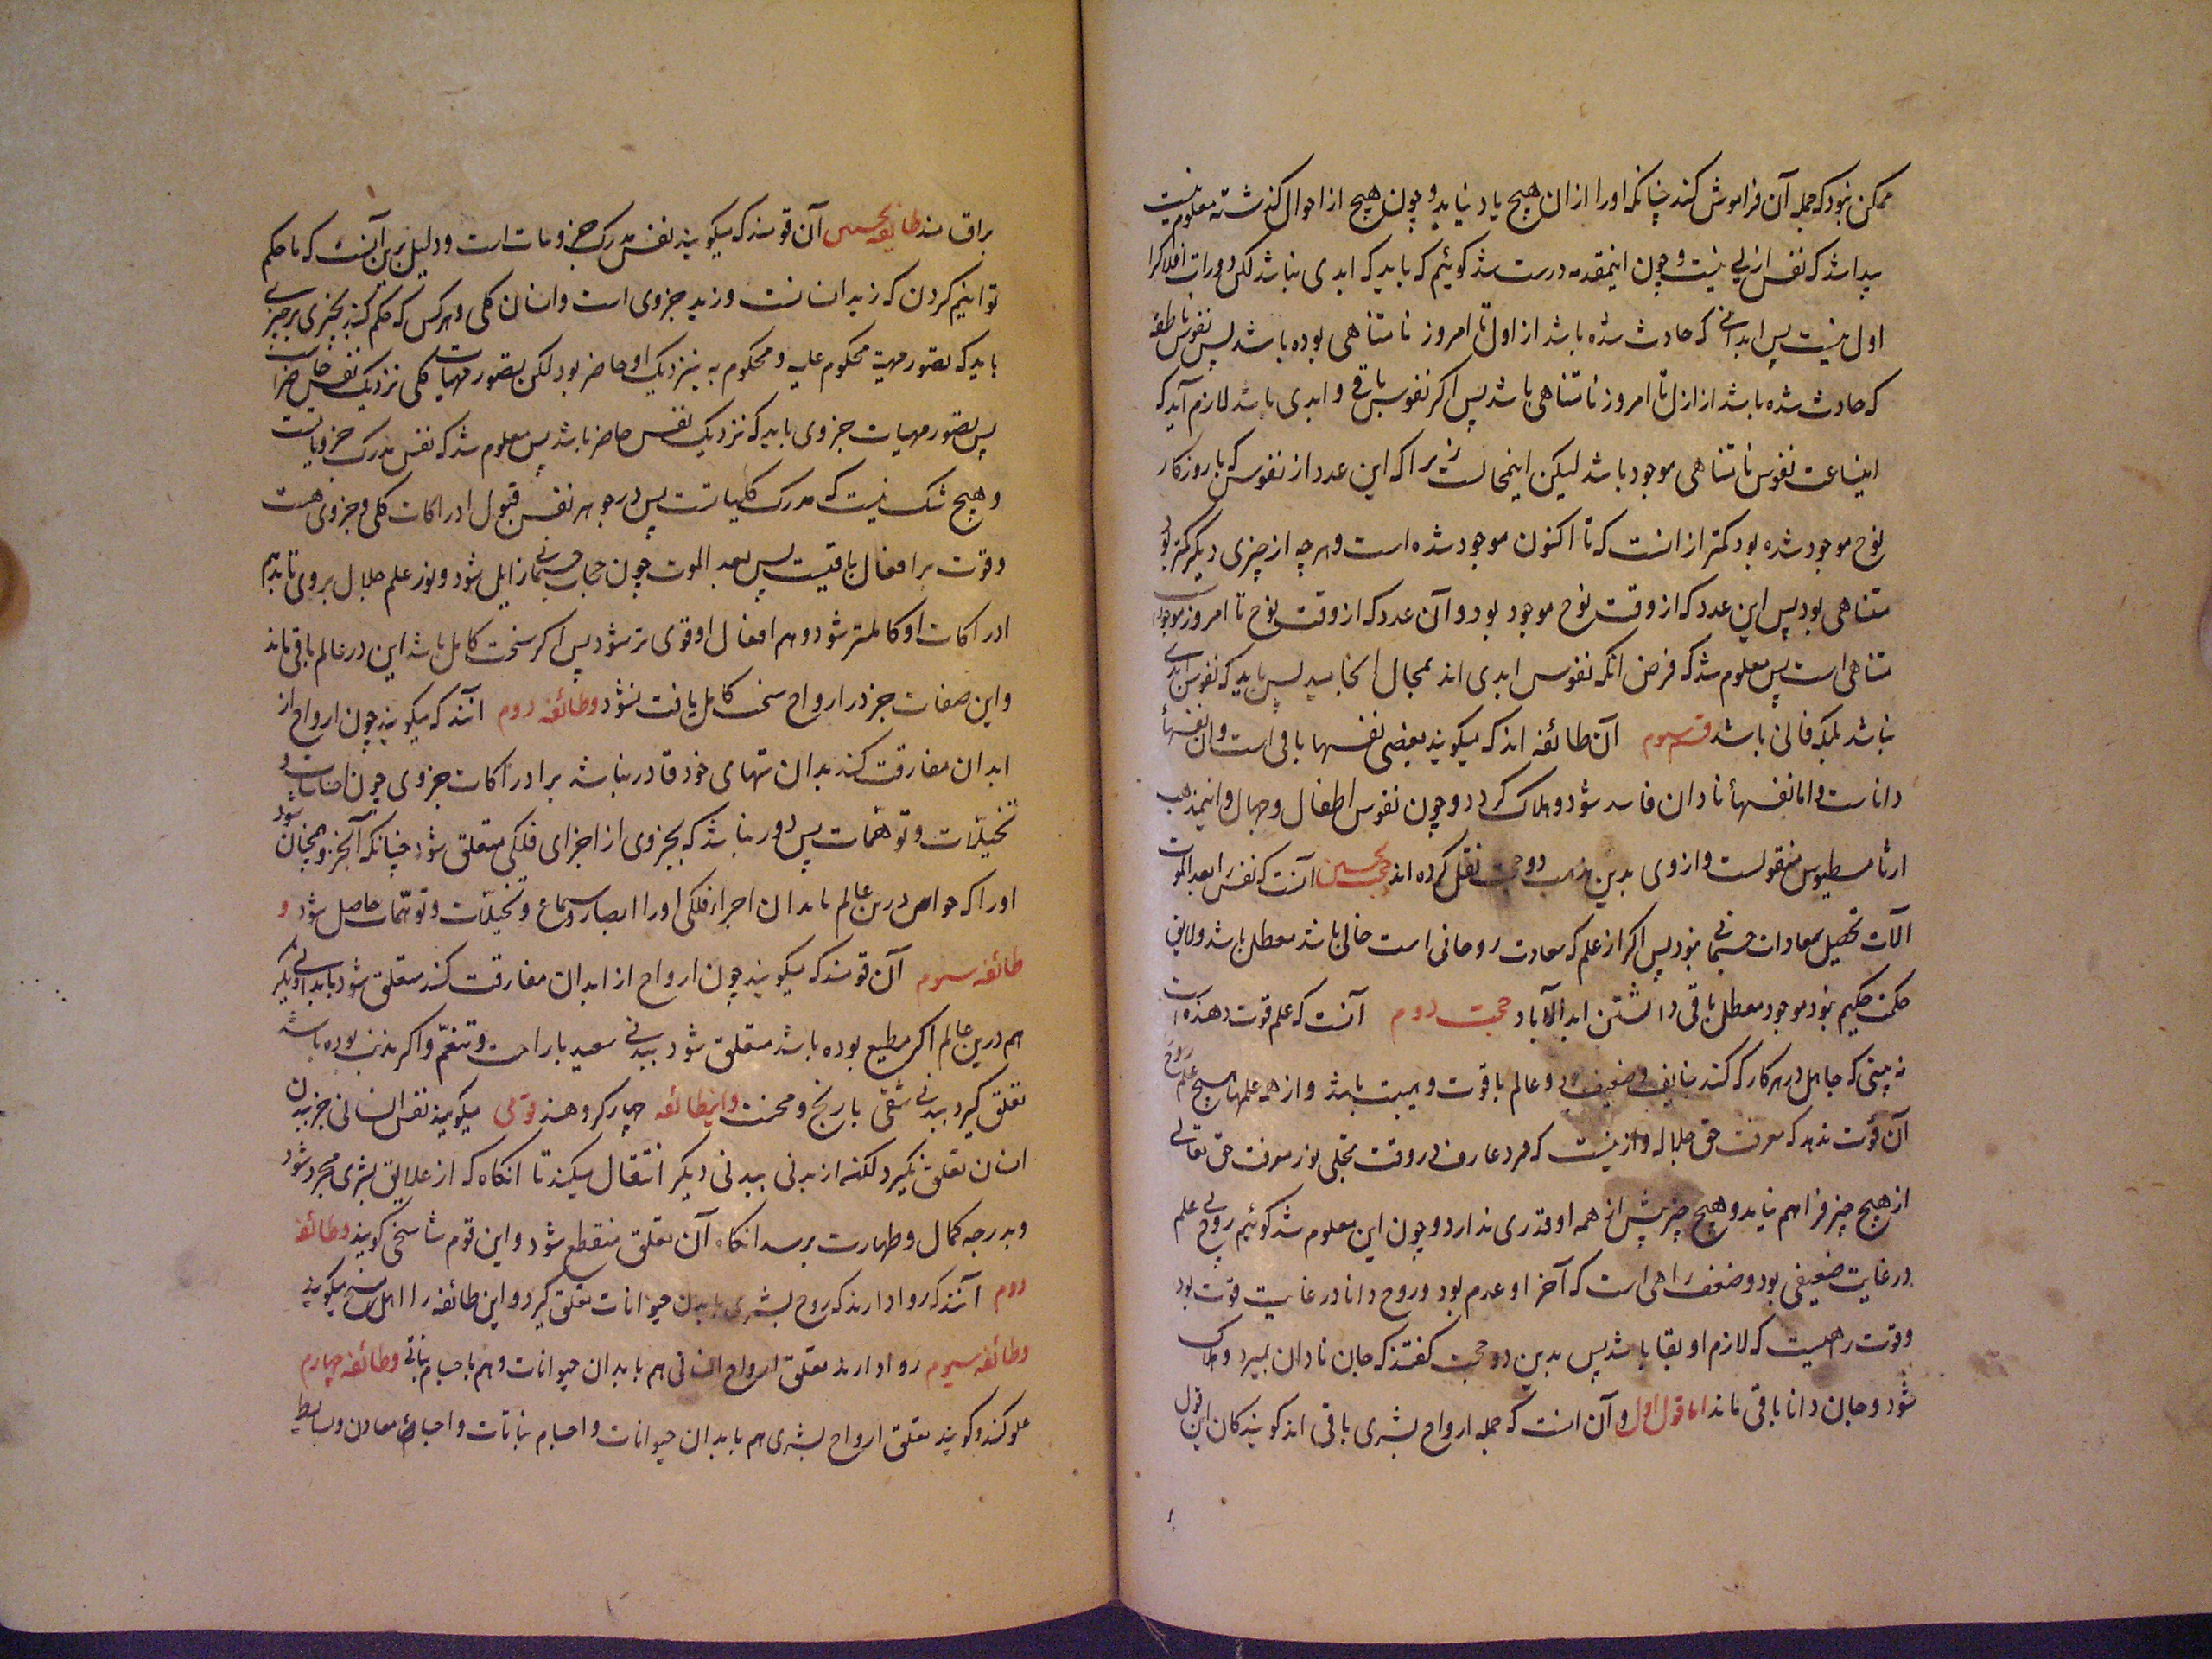 ممکن نبود که جمله آن فراموش کند چنانکه او را از ان هیچ یاد نیاید و چون هیچ از احوال گذشته معلوم نیست
پیدا شد که نفس ازلی نیست و چون اینمقدمه درست شد کوئیم که باید که ابدی نباشد لکن دورات افلاک را
اول نیست پس ابدانی که حادث شده باشد از اول تا امروز نامتناهی بوده باشد پس نفوس ناطقه
که حادث شده باشد از ازل تا امروز نامتناهی باشد پس اکر نفوس باقی و ابدی باشد لازم آید که
اینساعت نفوس نامتناهی موجود باشد لیکن اینمحالست زیرا که این عدد از نفوس که با روزکار
نوح موجود شده بود کمتر از انست که تا اکنون موجود شده است و هر چه از چیزی دیگر کمتر بود
متناهی بود پس این عدد که از وقت نوح موجود بود و آن عدد که از وقت نوح تا امروز موجود است
متناهی است پس معلوم شد که فرض انکه نفوس ابدی اند بمحال انجامید پس باید که نفوس ابدی
نباشد بلکه فانی باشد قسم سوم آن طائفه اند که میکویند بعضی نفسها باقی است و ان نفسهاء
داناست و اما نفسهاء نادان فاسد شود و هلاک کردد و چون نفوس اطفال و جهال و اینمذهب
از ثامسطیوس منقولست و از وی بدین مذهب دو حجت نقل کرده اند حجت نخستین آنست که نفس را بعد الموت
آلات تحصیل سعادات جسمانی نبود پس اکر از علم که سعادت روحانی است خالی باشد معطل باشد و لایق
حکمت حکیم نبود موجود معطل باقی داشتن ابد الآباد حجت دوم آنست که علم قوت دهنده است
نه بینی که جاهل در هر کار که کند خایف و ضعیف بود و عالم باقوت و هیبت باشد و از همه علمها هیچ علم روح را
آن قوت ندهد که معرفت حق جل جلاله و از نیست که مرد عارف در وقت تجلی نور معرفت حق تعالی
از هیچ چیز فراهم نیاید و هیچ چیز پیش از همه او قدری ندارد و چون این معلوم شد کوئیم روح بی علم
در غایت ضعیفی بود و ضعف راهی است که آخر او عدم بود و روح دانا در غایت قوت بود
و قوت راهیست که لازم او بقا باشد پس بدین دو حجت کفتند که جان نادان بمیرد و هلاک
شود و جان دانا باقی ماند اما قول اول و آن انست که جمله ارواح بشری باقی اند کویندکان این قول
براق مند طایفه نخستین آن قومند که میکویند نفس مدرک جزویات است و دلیل برین آنست که ما حکم
توانیم کردن که زید انسانست و زید جزوی است و انسان کلی و هر کس که حکم کند بچیزی بر چیزی
باید که تصور مهیت محکوم علیه و محکوم به بنزدیک او حاضر بود لکن تصور مهیات کلی نزدیک نفس حاضر است
پس تصور مهیات جزوی باید که نزدیک نفس حاضر باشد پس معلوم شد که نفس مدرک جزویاتست
و هیچ شک نیست که مدرک کلیاتست پس در جوهر نفس قبول ادراکات کلی و جزوی هست
و قوت بر افعال باقیست پس بعد الموت چون حجاب جسمانی زایل شود و نور علم جلال بر وی تابد هم
ادراکات او کاملتر شود و هم افعال او قوی تر شود پس اکر سخت کامل باشد این در عالم باقی ماند
و این صفات جز در ارواح سخت کامل یافت نشود و طائفه دوم انند که میکویند چون ارواح از
ابدان مفارقت کند بدان تنهای خود قادر نباشد بر ادراکات جزوی چون احساسات و
تخیلات و توهمات پس دور نباشد که بجزوی از اجزای فلکی متعلق شود چنانکه آنجزو همچنان شود
او را که حواس درین عالم با بدان اجرام فلکی او را ابصار و سماع و تخیلات و توهمات حاصل شود و
طائفه سوم آن قومند که میکویند چون ارواح از ابدان مفارقت کند متعلق شود بابدانی دیکر
هم درین عالم اکر مطیع بوده باشد متعلق شود ببدنی سعید باراحت و تنعم و اکر مذنب بوده باشد
تعلق کیرد ببدنی شقی با رنج و محنت و اینطائفه چهار کروهند قومی میکویند نفس انسانی جز ببدن
انسان تعلق نکیرد لکنه از بدنی ببدنی دیکر انتقال میکند تا انکاه که از علایق بشری مجرد شود
و بدرجه کمال و طهارت برسد انکاه آن تعلق منقطع شود و این قوم تناسخی کویند و طائفه
دوم آنند که روا دارند که روح بشری بابدان حیوانات تعلق کیرد و این طائفه را اهل مسخ میکویند
و طائفه سیوم روا دارند تعلق ارواح انسانی هم بابدان حیوانات و هم باجسام نباتی و طائفه چهارم
غلو کنند و کویند تعلق ارواح بشری هم بابدان حیوانات و اجسام نباتات و اجسام معادن و بسایط